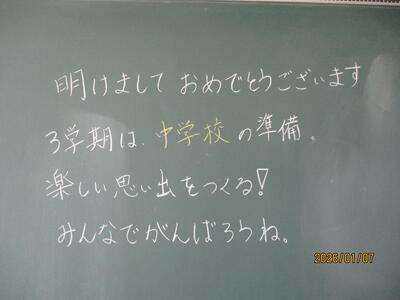 明けまして おめでとうございます
3学期は、中学校の準備。
楽しい思い出をつくる!
みんなでがんばろうね。
2025/01/07